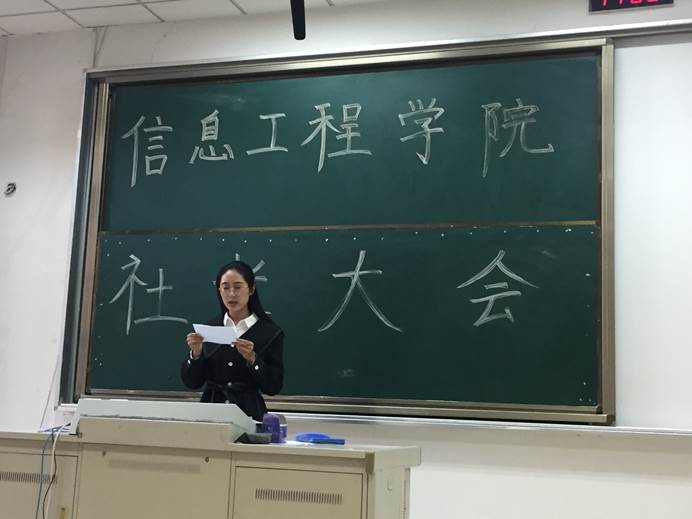 信息工程学院
社长大会